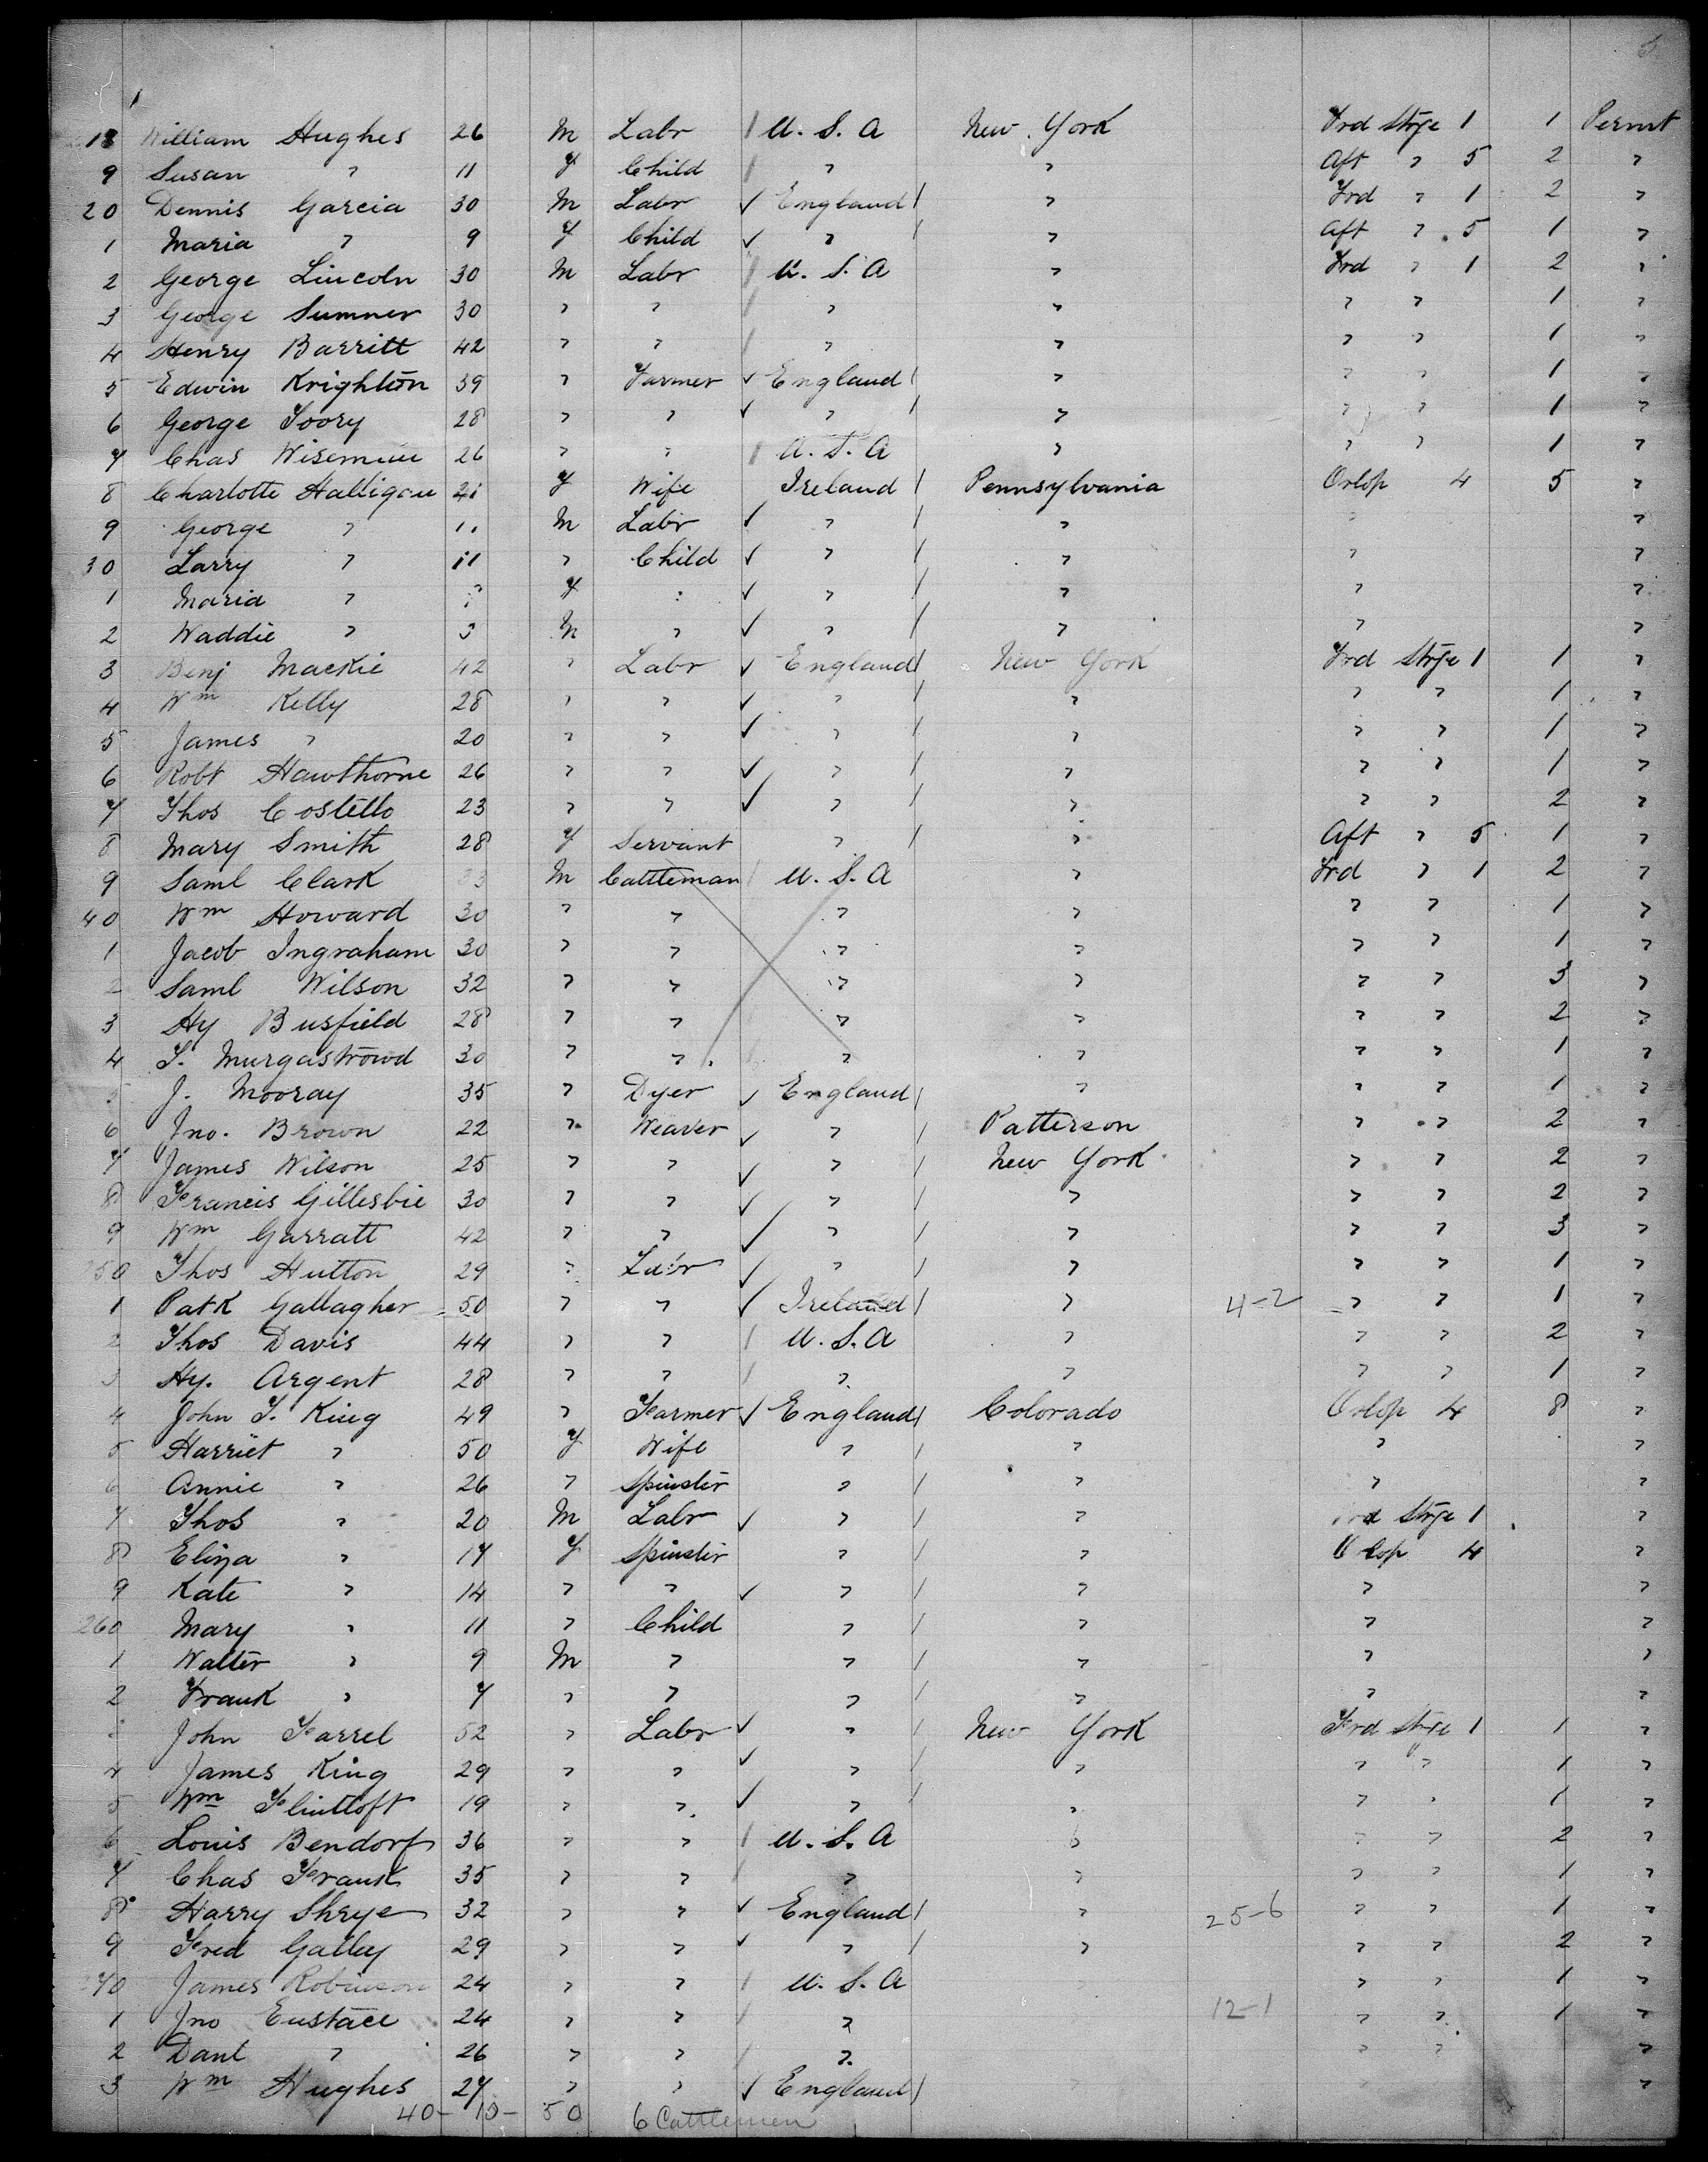 18 William Hughes 26 M Labr / U. S. A New York Frd Strge 1 1 Permt
9 Susan " 11 F Child / " " Aft " 5 2 "
20 Dennis Garcia 30 M Labr ✓ England / " Frd " 1 2 "
1 Maria " 9 F Child ✓ " " Aft " 5 1 "
2 George Lincoln 30 M Labr / U. S. A " Frd " 1 2 "
3 George Sumner 30 " " / " " " " 1 "
4 Henry Barritt 42 " " / " " " " 1 "
5 Edwin Krighton 39 " Farmer ✓ England / " " " 1 "
6 George Ivory 28 " " ✓ " / " " " 1 "
7 Chas Wiseman 26 " " / U. S. A " " " 1 "
8 Charlotte Halligan F Wife Ireland / Pennsylvania Orlop 4 5 "
9 George " M Labr ✓ " / " " "
30 Larry " 11 " Child ✓ " / " " "
1 Maria " F " ✓ " / " " "
2 Waddie " 3 M " ✓ " / " " "
3 Benj Mackie 42 " Labr ✓ England / New York Frd Strge 1 1 "
4 Wm Kelly 28 " " ✓ " / " " " 1 "
5 James " 20 " " ✓ " / " " " 1 "
6 Robt Hawthorne 26 " " ✓ " / " " " 1 "
7 Thos Costello 23 " " ✓ " / " " " 2 "
8 Mary Smith 28 F Servant " / " Aft " 5 1 "
9 Saml Clark 33 M Cattleman / U. S. A " Frd " 1 2 "
40 Wm Howard 30 " " " " " " 1 "
1 Jacob Ingraham 30 " " " " " " 1 "
2 Saml Wilson 32 " " " " " " 3 "
3 Hy Busfield 28 " " " " " " 2 "
4 T. Murgastrowd 30 " " " " " " 1 "
5 J. Mooray 35 " Dyer ✓ England / " " " 1 "
6 Jno. Brown 22 " Weaver ✓ " / Patterson " " 2 "
7 James Wilson 25 " " ✓ " / New York " " 2 "
8 Francis Gillesbie 30 " " ✓ " / " " " 2 "
9 Wm Garratt 42 " " ✓ " / " " " 3 "
250 Thos Hutton 29 " Labr ✓ " / " " " 1 "
1 Patk Gallagher 50 " " ✓ Ireland / " 4-2 " " 1 "
2 Thos Davis 44 " " / U. S. A " " " 2 "
3 Hy. Argent 28 " " / " " " " 1 "
4 John T. King 49 " Farmer ✓ England / Colorado Orlop 4 8 "
5 Harriet " 50 F Wife " / " " "
6 Annie " 26 " Spinster " / " " "
7 Thos " 20 M Labr ✓ " / " Frd Strge 1 "
8 Eliza " 17 F Spinster " / " Orlop 4 "
9 Kate " 14 " " ✓ " / " " "
260 Mary " 11 " Child " / " " "
1 Walter " 9 M " " / " " "
2 Frank " 7 " " " / " " "
3 John Farrel 52 " Labr ✓ " / New York Frd Strge 1 1 "
4 James King 29 " " ✓ " / " " " 1 "
5 Wm Flintoft 19 " " ✓ " / " " " 1 "
6 Louis Bendorf 36 " " / U. S. A " " " 2 "
7 Chas Frank 35 " " / " " " " 1 "
8 Harry Shrye 32 " " ✓ England / " 25-6 " " 1 "
9 Fred Galley 29 " " ✓ " / " " " 2 "
270 James Robinson 24 " " / U. S. A " " 1 "
1 Jno Eustace 24 " " / " 12-1 " " 1 "
2 Danl " 26 " " / " " " "
3 Wm Hughes 27 " " ✓ England / "
40- 10- 50 6 Cattlemen